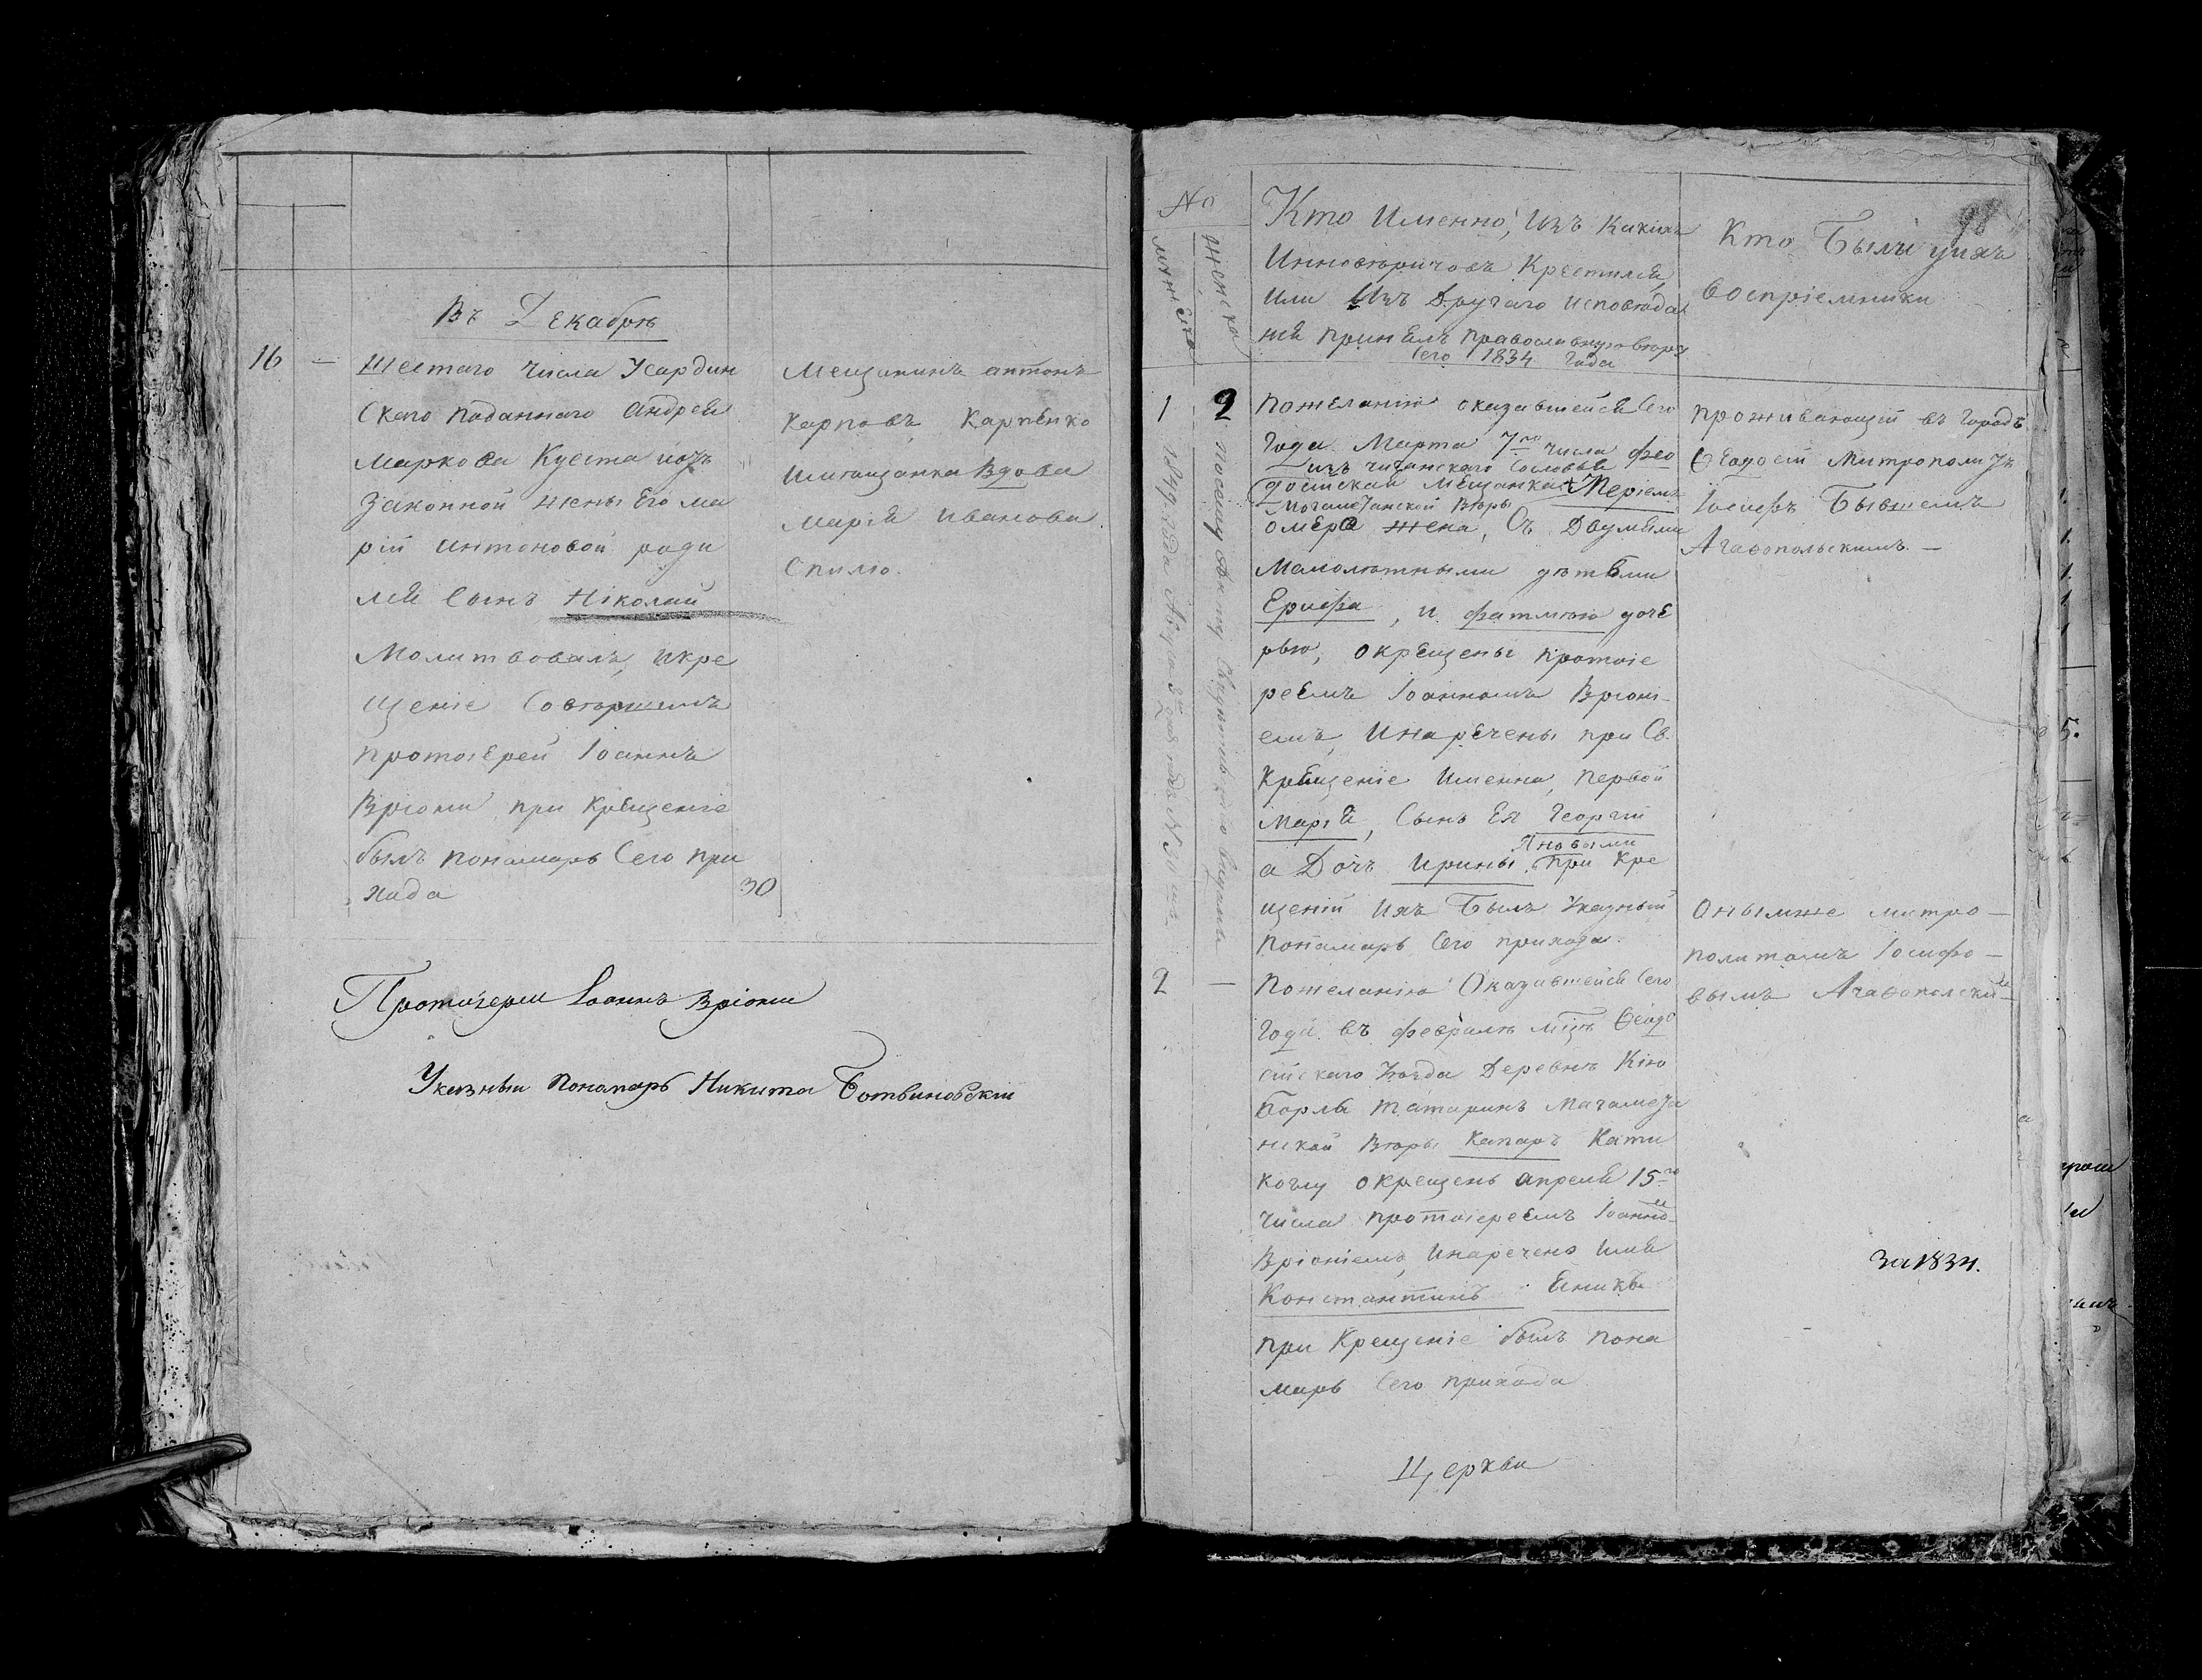 Въ Декабрѣ
16 —
Шестаго числа Усардин
скаго подданнаго Андрея
Маркова Куста изъ
законной жены Его Ма
рій Антоновой роди
лся Сынъ Ніколай
Молитвовалъ, икре
щеніе Совѣршилъ
протоіерей Іоаннъ
Вріони, при Крѣщеніе
былъ понамарь Сего При
хода
30
Мещанинъ антонъ
Карповъ Карпенко
Имѣщанка Вдова
Марія Иванова
Спилю.
Протоіереи Іоаннъ Вріони
Указныи Понамарь Никита Ботвиновскіи
№
мужеска
женска
Кто Именно, Изъ Какихъ
Инновѣрцовъ Крестился,
или Изъ Другаго исповѣда
ния принялъ православную вѣру
Сего 1834 Года
Кто Были уихъ
воспріемники
1 2
пожеланію оказавшейся Сего
Года Марта 7го числа Фео
изъ циганскаго сословья
досійская Мещанка Меріемъ
Могаметанской Вѣры
омѣра жена, Съ Двумями
Малолѣтными дѣтьми
Ерифа, и фатмѣю доче
рью, окрѣщены протоіе
реемъ Іоанномъ Вріоні-
емъ, Инарѣчены при Св.
Крѣщеніе Имѣнна, первой
Марія, Сынъ Ея Георгій
Яновыми
а Дочъ Ирины, при Кре
щеній Ихъ Былъ Указный
Понамарь Сего прихода.
проживающій въ Городѣ
Ѳеодосій Митрополитъ
Іосифъ Бывшемъ
Агаѳопольскимъ. —
2 —
Пожеланію Оказавшейся Сего
Года въ февралѣ мцъ Ѳеодо
сійскаго Уѣзда Деревнѣ Кію
Борлы татаринъ Магамета
нской Вѣры Капаръ Кати
коглу окрещенъ апреля 15го
числа протоіереемъ Іоанно
Вріоніемъ, Инаречено Имя
Константинъ
при Крещеніе былъ пона
марь Сего прихода
Онымже митро—
политомъ Іосифо—
вымъ Агаѳополски
За 1834.
Церкви